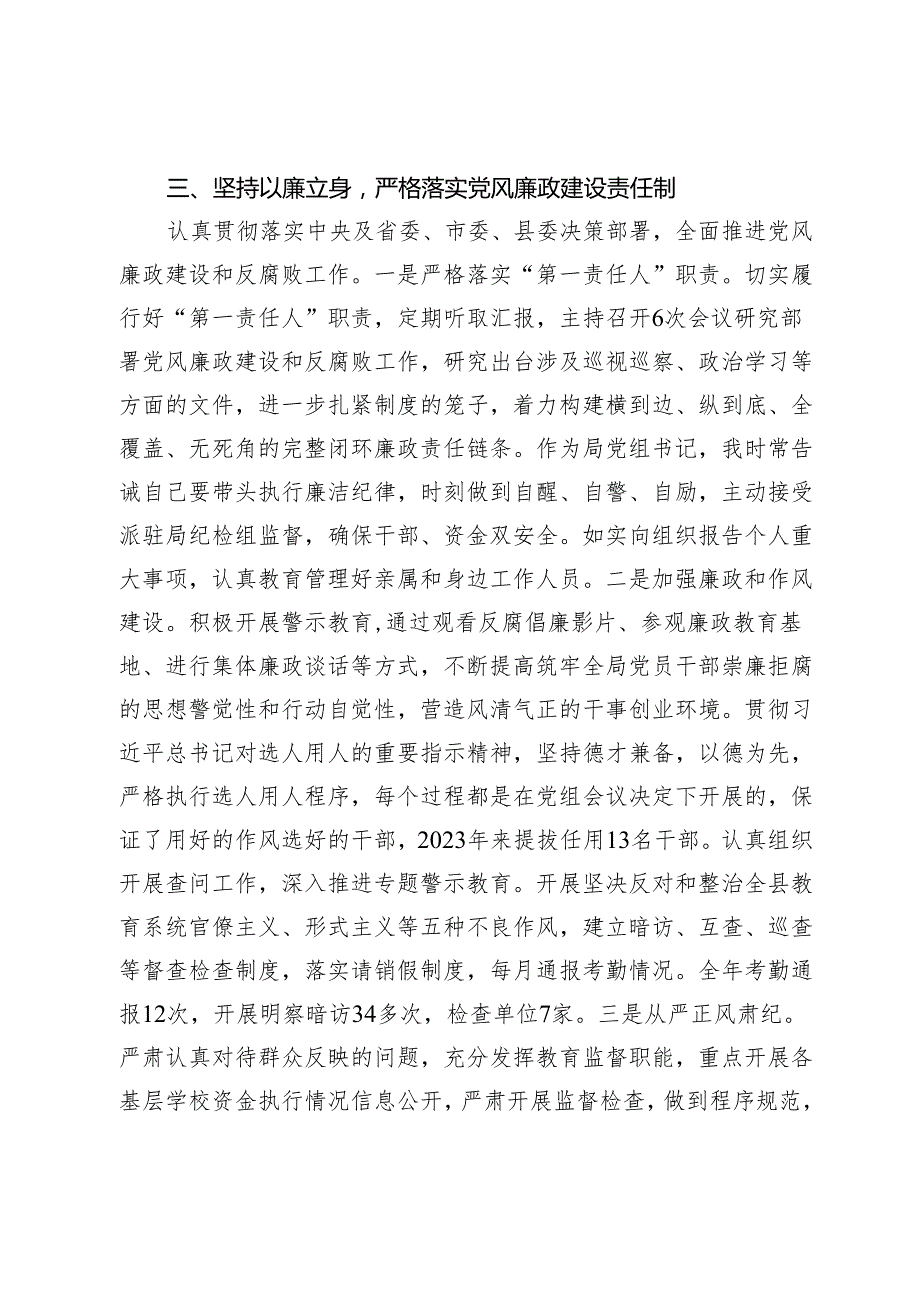 三、坚持以廉立身，严格落实党风廉政建设责任制
认真贯彻落实中央及省委、市委、县委决策部署，全面推进党风
廉政建设和反腐败工作。一是严格落实“第一责任人”职责。切实履
行好“第一责任人”职责，定期听取汇报，主持召开6次会议研究部
署党风廉政建设和反腐败工作，研究出台涉及巡视巡察、政治学习等
方面的文件，进一步扎紧制度的笼子，着力构建横到边、纵到底、全
覆盖、无死角的完整闭环廉政责任链条。作为局党组书记，我时常告
诫自己要带头执行廉洁纪律，时刻做到自醒、自警、自励，主动接受
派驻局纪检组监督，确保干部、资金双安全。如实向组织报告个人重
大事项，认真教育管理好亲属和身边工作人员。二是加强廉政和作风
建设。积极开展警示教育,通过观看反腐倡廉影片、参观廉政教育基
地、进行集体廉政谈话等方式，不断提高筑牢全局党员干部崇廉拒腐
的思想警觉性和行动自觉性，营造风清气正的干事创业环境。贯彻习
近平总书记对选人用人的重要指示精神，坚持德才兼备，以德为先，
严格执行选人用人程序，每个过程都是在党组会议决定下开展的，保
证了用好的作风选好的干部，2023年来提拔任用13名干部。认真组织
开展查问工作，深入推进专题警示教育。开展坚决反对和整治全县教
育系统官僚主义、形式主义等五种不良作风，建立暗访、互查、巡查
等督查检查制度，落实请销假制度，每月通报考勤情况。全年考勤通
报12次，开展明察暗访34多次，检查单位7家。三是从严正风肃纪。
严肃认真对待群众反映的问题，充分发挥教育监督职能，重点开展各
基层学校资金执行情况信息公开,严肃开展监督检查，做到程序规范，